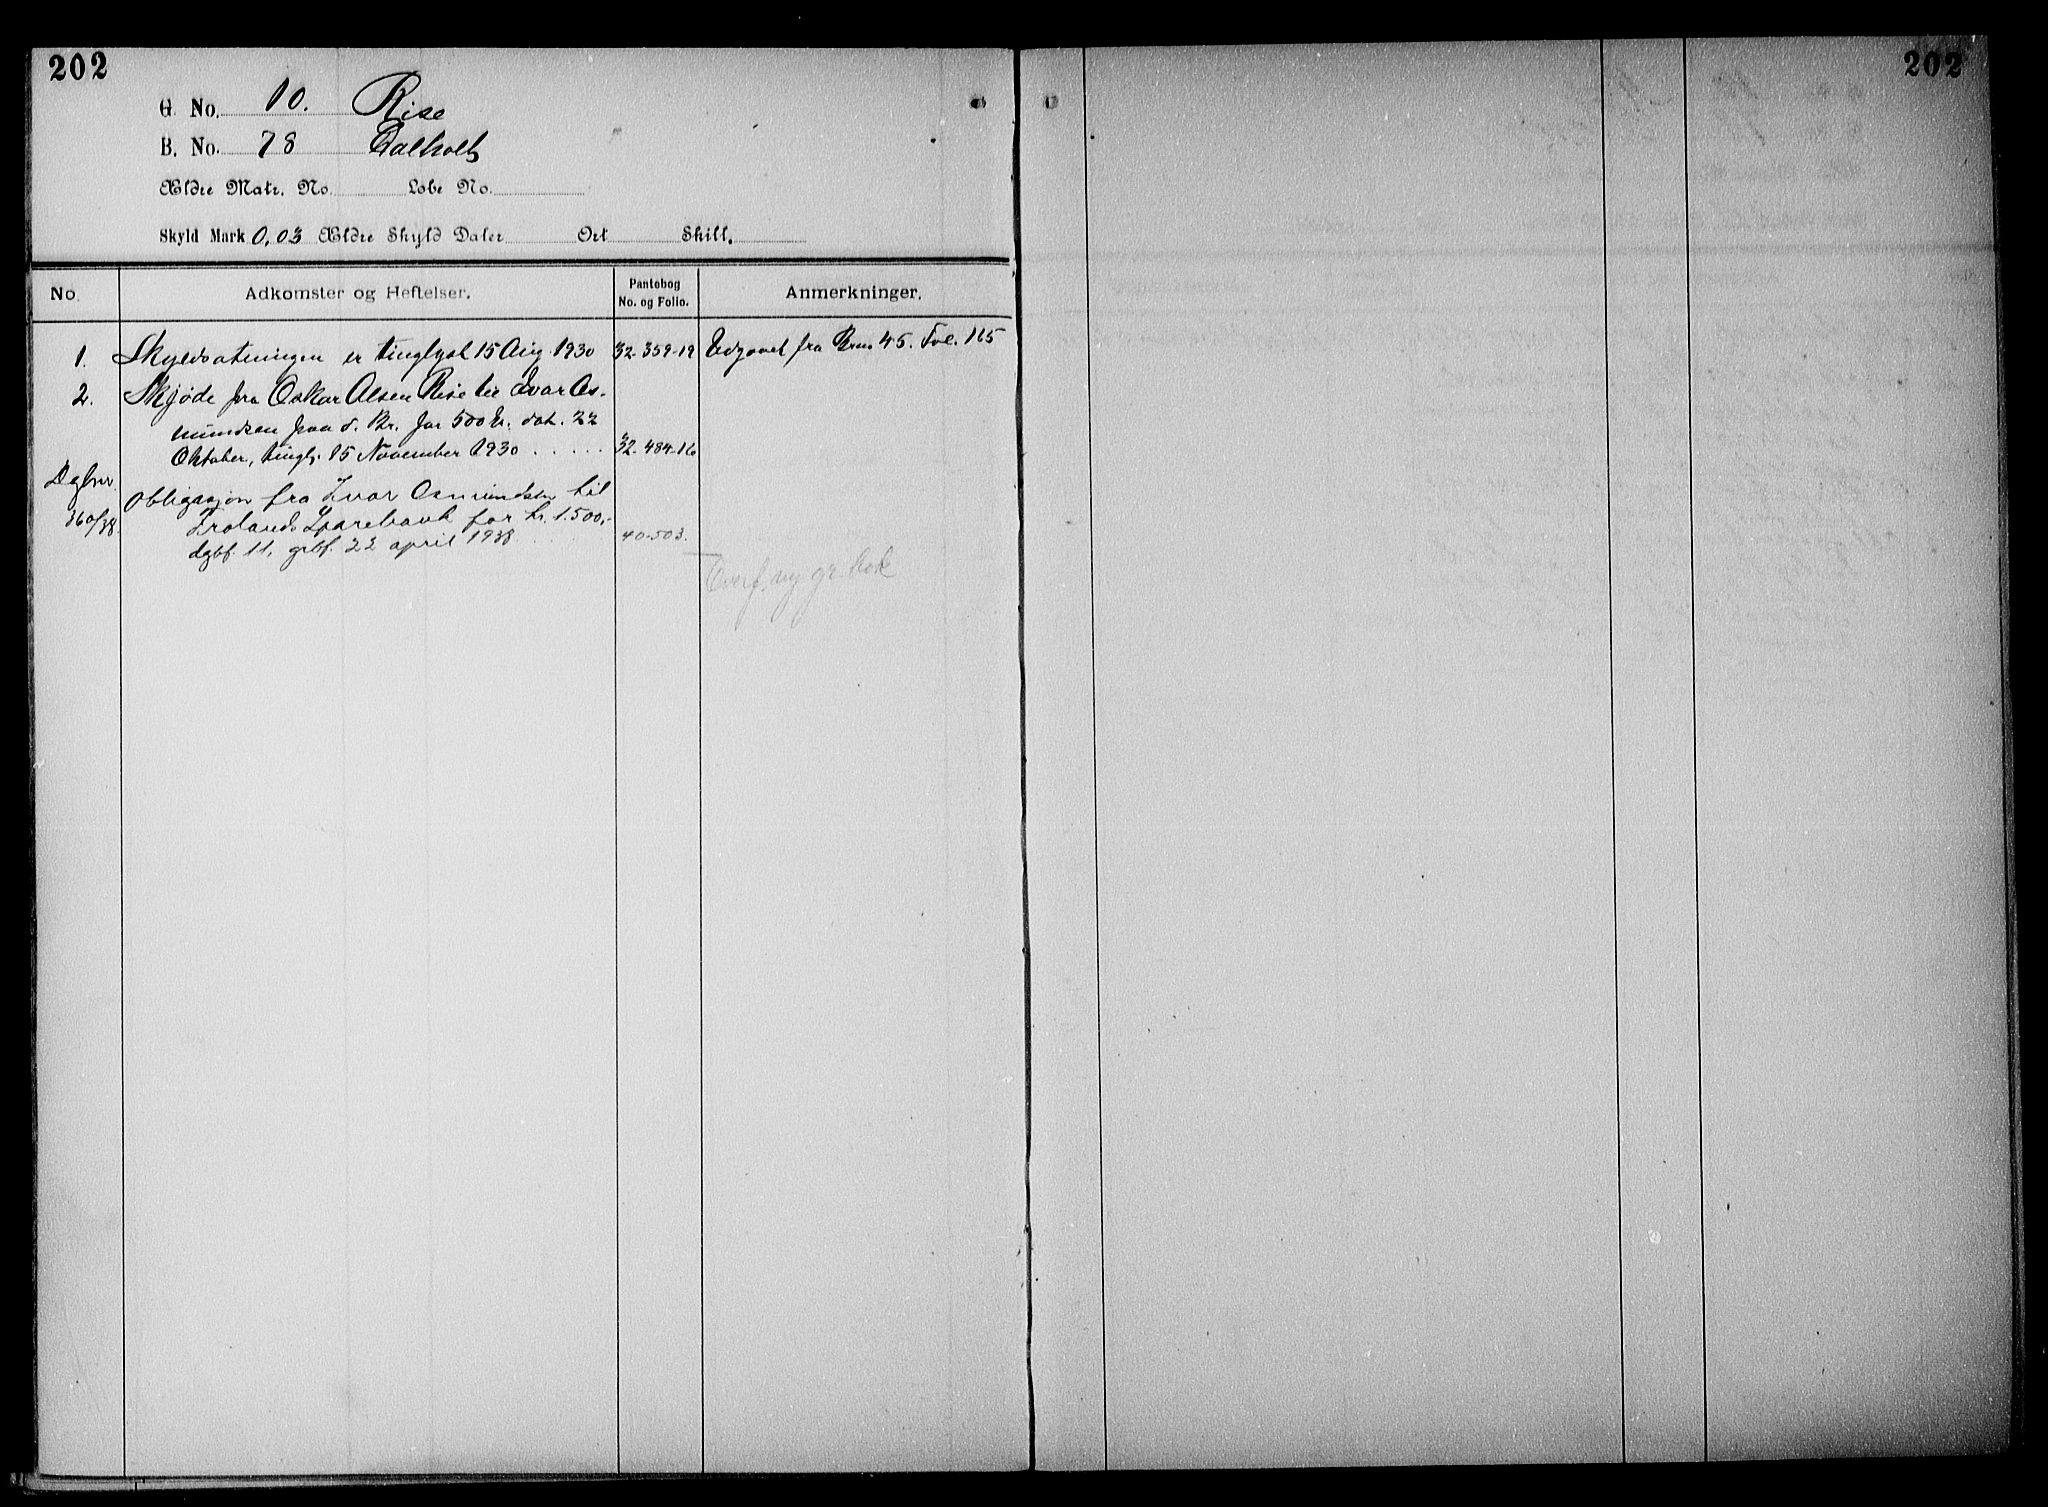 202
202
G. No. 10. Rise
B. No. 78 Dalholt
Ældre Matr. No. Løbe No.
Skyld Mark 0,03 Ældre Skyld Daler Ort Skill.
No. Adkomster og Heftelser. Pantebog No. og Folio. Anmerkninger.
1. Skyldsætningen er tinglyst 15 Aug 1930 32-359-19 Udgaaet fra Brno 45. Fol. 165
2. Skjøde fra Oskar Alsen Rise til Ivar Os-
mundsen paa d. Br. for 500 kr. dat. 22
Oktober, tingl. 15 November 1930 . . . . . 32-484-16
Dgbnr. Obligasjon fra Ivar Osmundsen til
360/38. Frolands Sparebank for kr. 1.500,-
dgbf. 11, grbf. 22 april 1938 40-503.
Overf. ny gr. bok